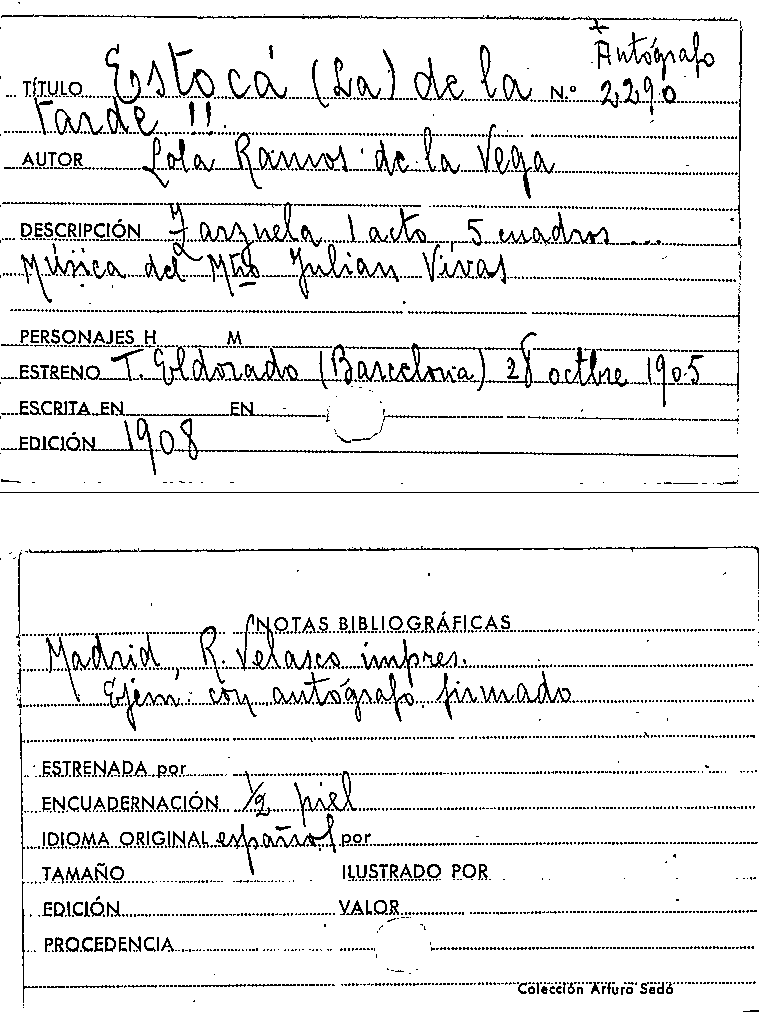 +
Autógrafo
TÍTULO Estocá (La) de la N.º 2290
Tarde!!
AUTOR Lola Ramos de la Vega
DESCRIPCIÓN Zarzuela 1 acto 5 cuadros...
Música del Mtro Julian Vivas
PERSONAJES H M
ESTRENO T. Eldorado (Barcelona) 28 octbre 1905
ESCRITA EN EN
EDICIÓN 1908
NOTAS BIBLIOGRÁFICAS
Madrid, R. Velasco impres.
Ejem. con autógrafo firmado
ESTRENADA por
ENCUADERNACIÓN 1/2 piel
IDIOMA ORIGINAL español por
TAMAÑO ILUSTRADO POR
EDICIÓN VALOR
PROCEDENCIA
Colección Arturo Sedó